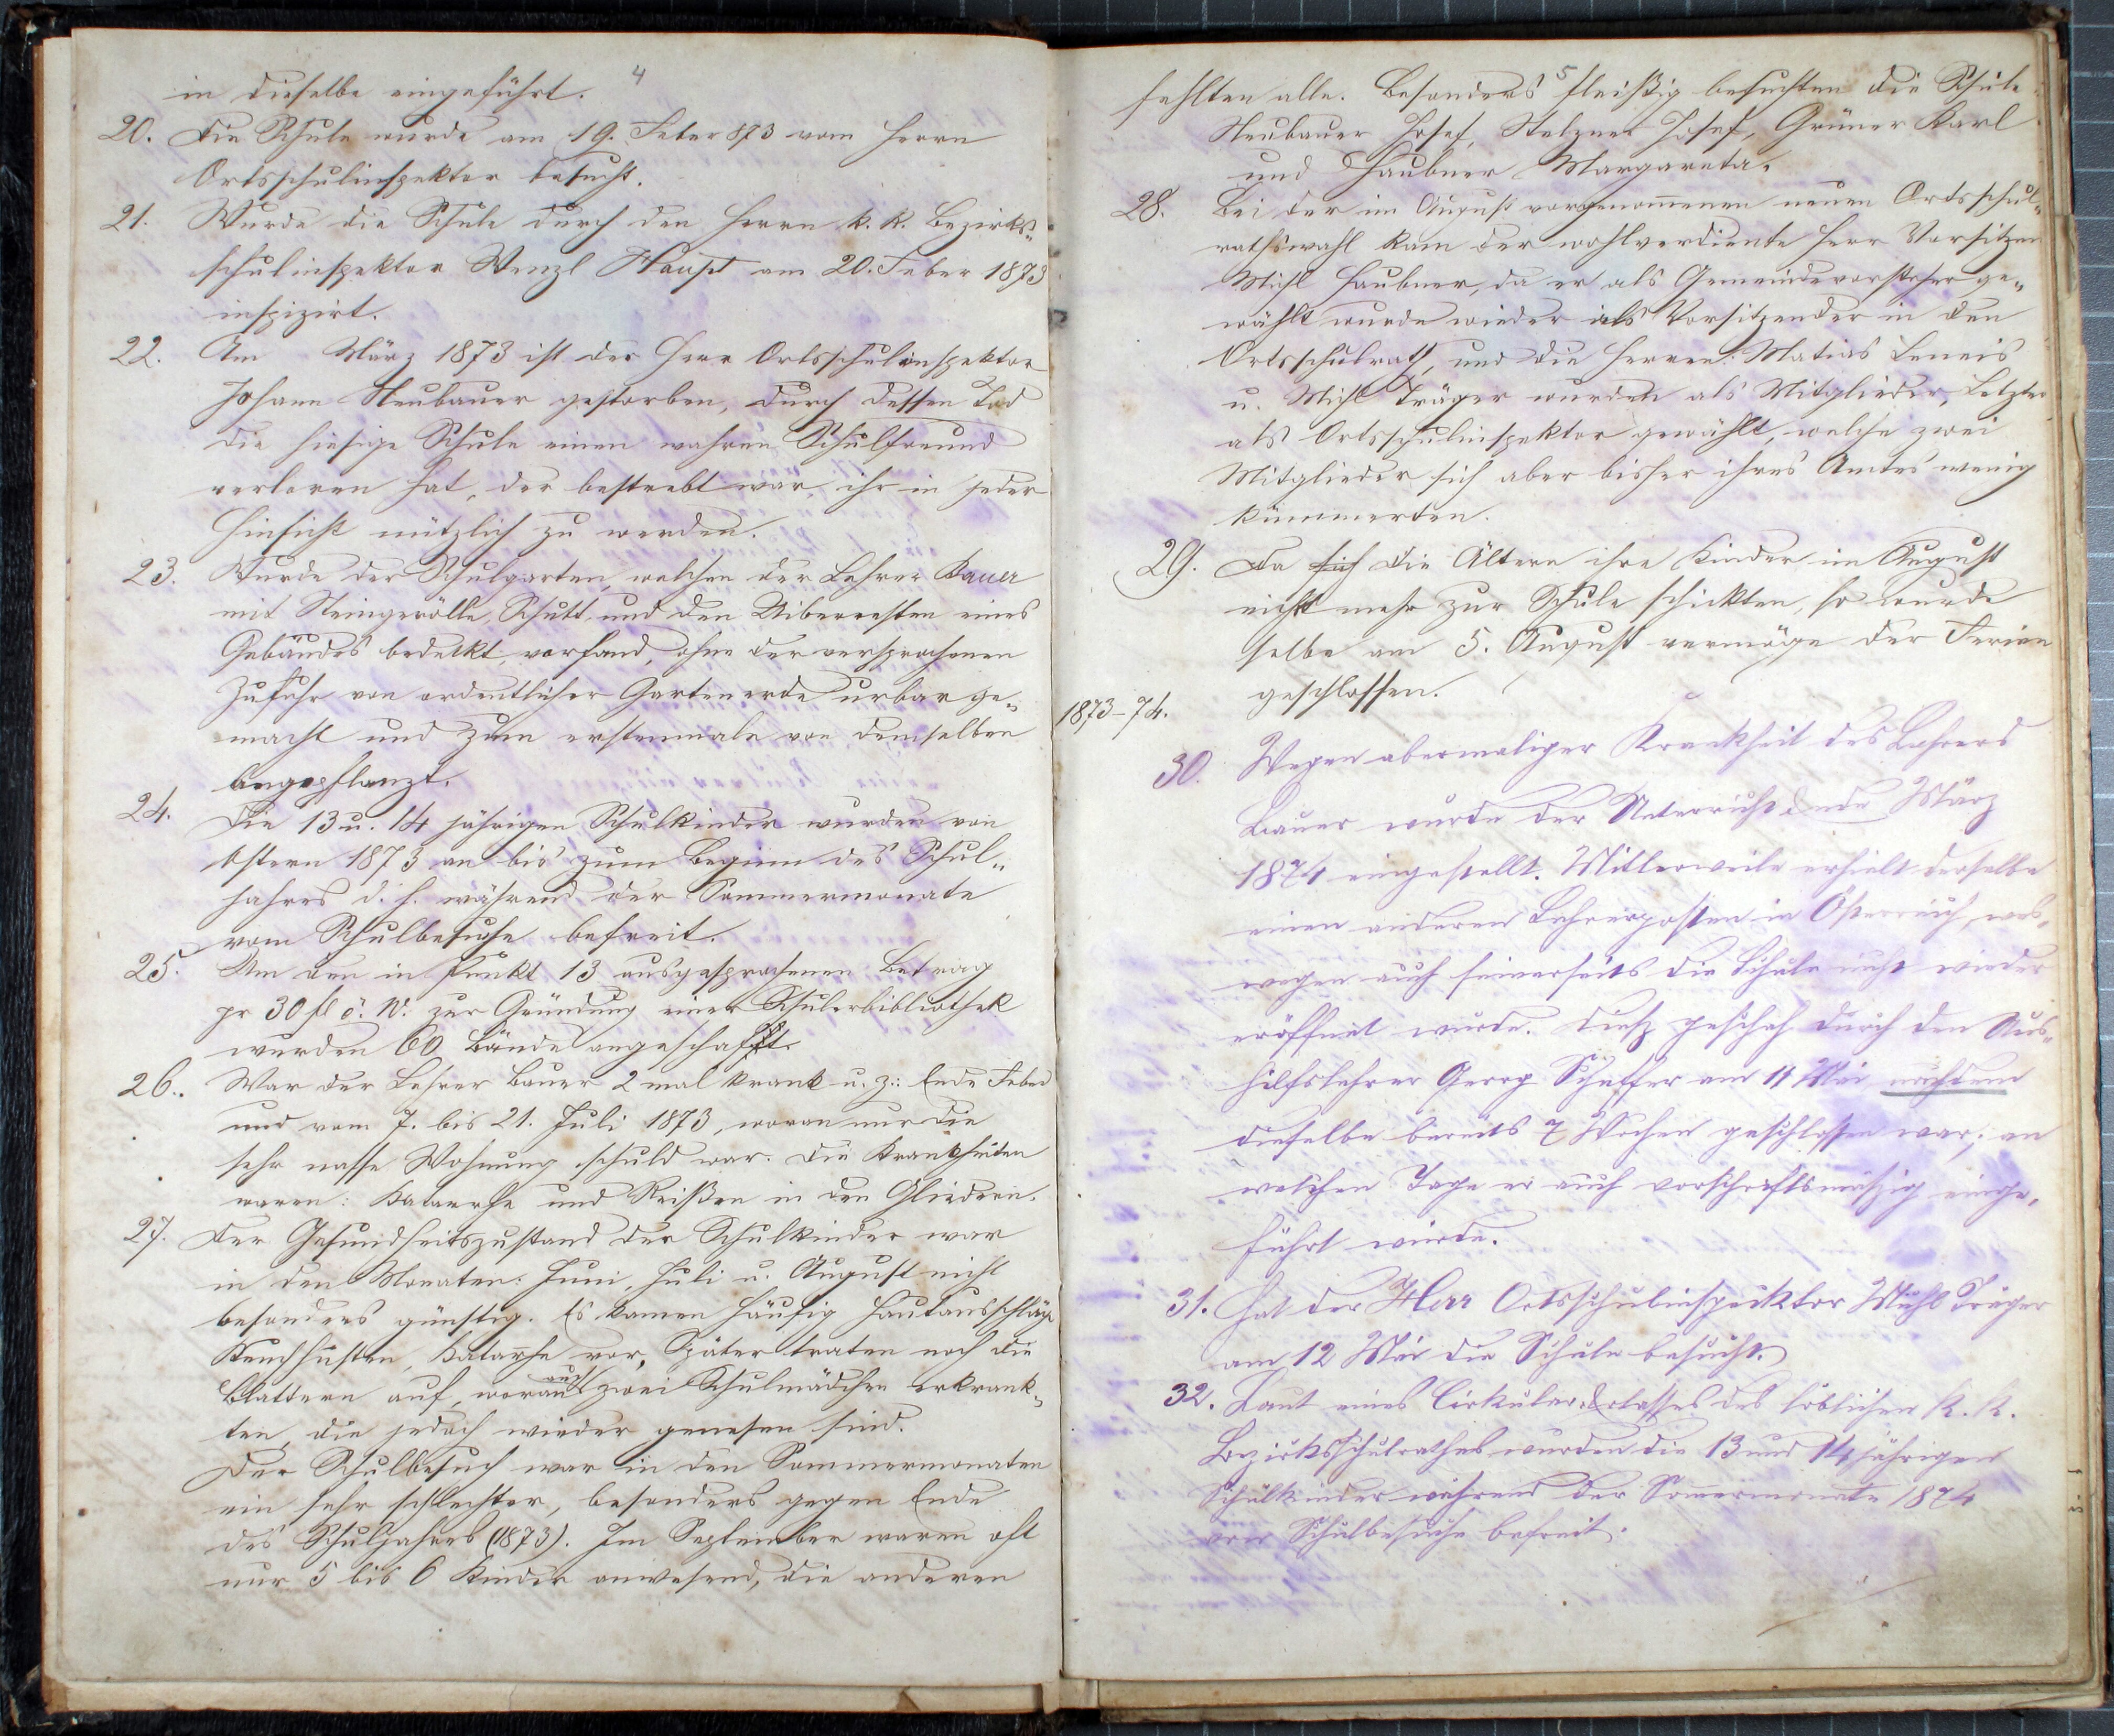 4
in dieselbe eingeführt.
20. Die Schule wurde am 19. Feber 873 vom Herrn
Ortsschulinspektor besucht.
21. Wurde die Schule durch den Herrn k. k. Bezirks-
schulinspektor Wenzl Haupt am 20. Feber 1873
inspizirt.
22. Am März 1873 ist der Herr Ortsschulinspektor
Johann Neubauer gestorben, durch dessen Tod
die hiesige Schule einen wahren Schulfreund
verloren hat, der bestrebt war, ihr in jeder
Hinsicht nützlich zu werden.
23. Wurde der Schulgarten, welchen der Lehrer Bauer
mit Steingerölle, Schutt und den Uiberresten eines
Gebäudes bedeckt, vorfand, ohne der versprochenen
Zufuhr von ordentlicher Gartenerde urbar ge-
macht und zum erstenmale von demselben
angepflanzt.
24. Die 13 u. 14 jährigen Schulkinder wurden von
Ostern 1873 an bis zum Beginn des Schul-
jahres d. h. während der Sommermonate
vom Schulbesuche befreit.
25. Um den in Punkt 13 ausgesprochenen Betrag
pr 30 fl ö. W. zur Gründung einer Schulerbibliothek
wurden 60 Bände angeschafft.
26. War der Lehrer Bauer 2 mal krank u. z.: Ende Feber
und vom 7. bis 21. Juli 1873, woran nur die
sehr nasse Wohnung schuld war. Die Krankheiten
waren: Katarrhe und Reißen in den Gliedern.
27. Der Gesundheitszustand der Schulkinder war
in den Monaten: Juni, Juli u. August nicht
besonders günstig. Es kamen häufig Hautausschläge
Keuchhusten, Katarrhe vor, Später traten noch die
Blattern auf, woran auch zwei Schulmädchen erkrank-
ten, die jedoch wieder genesen sind.
Der Schulbesuch war in den Sommermonaten
ein sehr schlechter, besonders gegen Ende
des Schuljahres (1873). Im September waren oft
nur 5 bis 6 Kinder anwesend, die anderen
5
fehlten alle. Besonders fleißig besuchten die Schule
Neubauer Josef, Stelzner Josef, Grüner Karl
und Haubner Margareta.
28. Bei der im August vorgenommenen neuen Ortsschul-
rathswahl kam der wohlverdiente Herr Vorsitzen
Michl Haubner, da er als Gemeindevorsteher ge-
wählt wurde wieder als Vorsitzender in den
Ortsschulrath, und die Herren: Matias Leneis
u. Michl Träger wurden als Mitglieder, Letzter
als Ortsschulinspektor gewählt, welche zwei
Mitglieder sich aber bisher ihres Amtes wenig
kümmerten.
29. Da sich die Ältern ihre Kinder im August
nicht mehr zur Schule schickten, so wurde
selbe am 5. August vermöge der Ferien
geschlossen.
1873-74.
30. Wegen abermaliger Krankheit des Lehrers
Bauer wurde der Unterricht Ende März
1874 eingestellt. Mitlerweile erhielt derselbe
einen anderen Lehrerposten in Österreich, wes-
wegen auch seinerseits die Schule nicht wieder
eröffnet wurde. Diesz geschah durch den Aus-
hilfslehrer Georg Schaffer am 11 Mai nachdem
dieselbe bereits 7 Wochen geschlossen war, an
welchem Tage er auch vorschriftsmäszig einge-
führt wurde.
31. Hat der Herr Ortsschulinspecktor Michl Träger
am 12 Mai die Schule besucht.
32. Laut eines Cirkular-Erlasses des löblichen k. k.
Bezirksschulrathes wurden die 13 und 14 jährigen
Schulkinder während der Sommermonate 1874
vom Schulbesuche befreit.